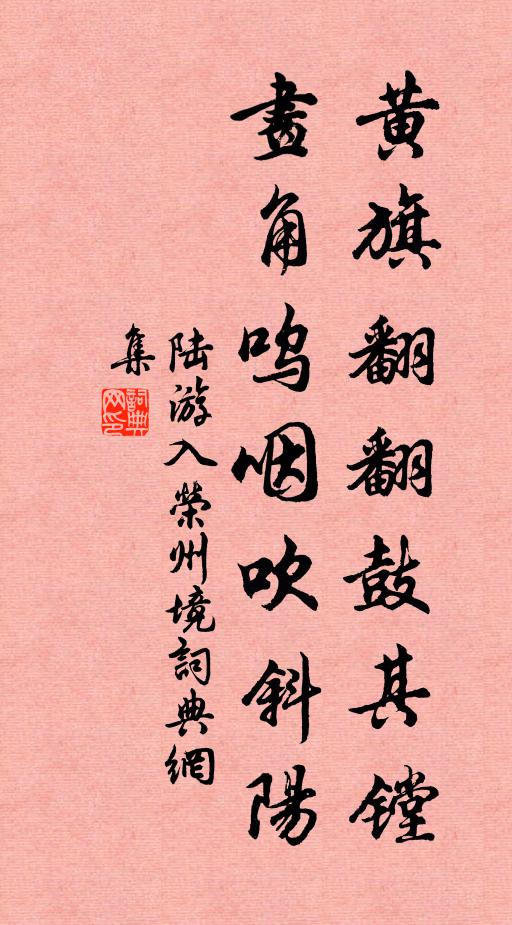 黄旗翻翻鼓其镗
畫角呜咽吹斜陽
陆游入榮州境詞典網
集
詞典网印